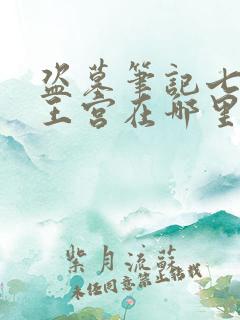 盗墓筆記七
王宫在哪里
紫月流蘇
未经同意禁止转载